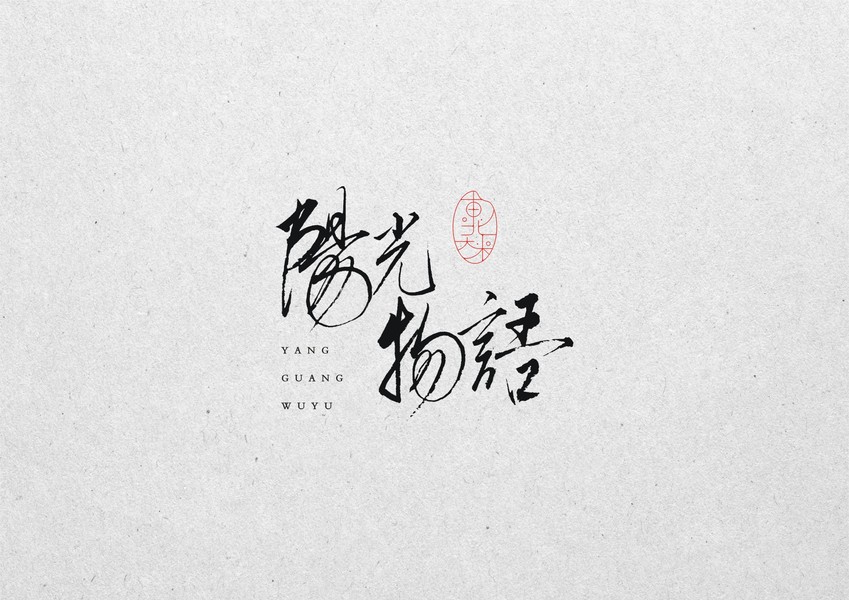 陽光
物語
東北大米
YANG
GUANG
WUYU